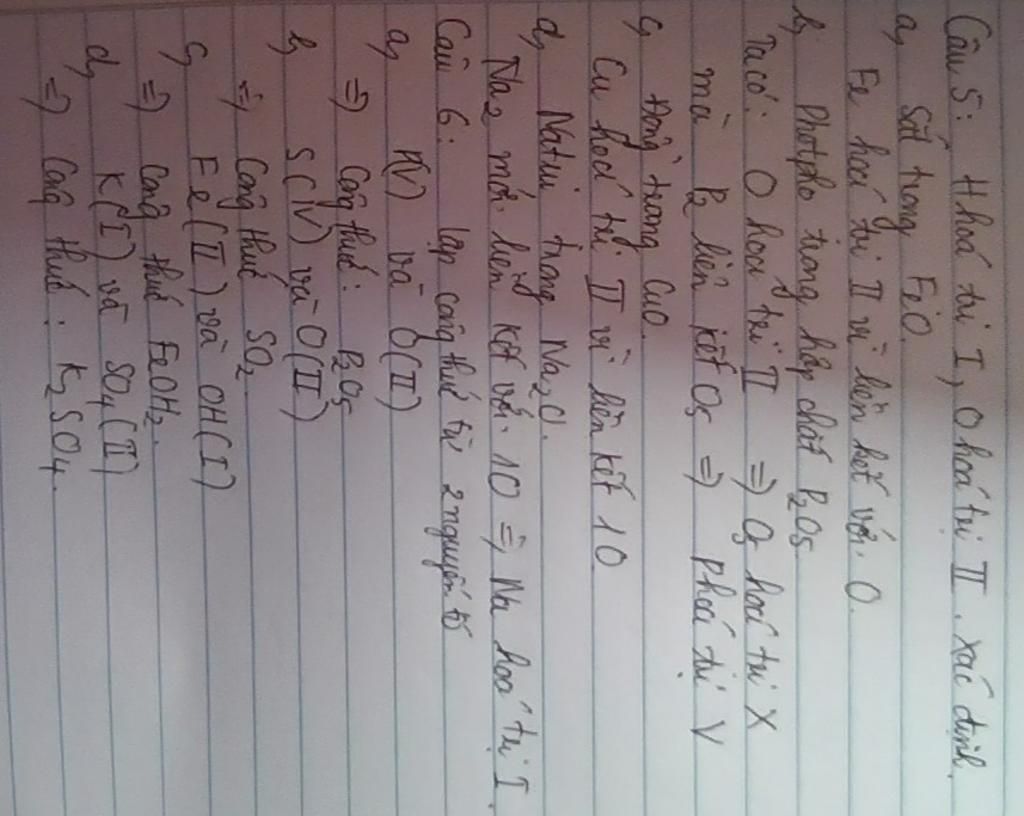 Câu 5: H hoá trị I, O hoá trị II. Xác định
a, Sắt trong FeO.
Fe hoá trị II vì liên kết với 1 O.
b, Photpho trong hợp chất P2O5
Ta có: O hoá trị II => O5 hoá trị X
mà P2 liên kết O5 => P hoá trị V
c, Đồng trong CuO.
Cu hoá trị II vì liên kết 1 O
d, Natri trong Na2O.
Na2 mới liên kết với 1O => Na hoá trị I.
Câu 6: Lập công thức từ 2 nguyên tố
a, P(V) và O(II)
=> Công thức: P2O5
b, S(IV) và O(II)
=> Công thức SO2
c, Fe(II) và OH(I)
=> Công thức FeOH2.
d, K(I) và SO4(II)
=> Công thức: K2SO4.